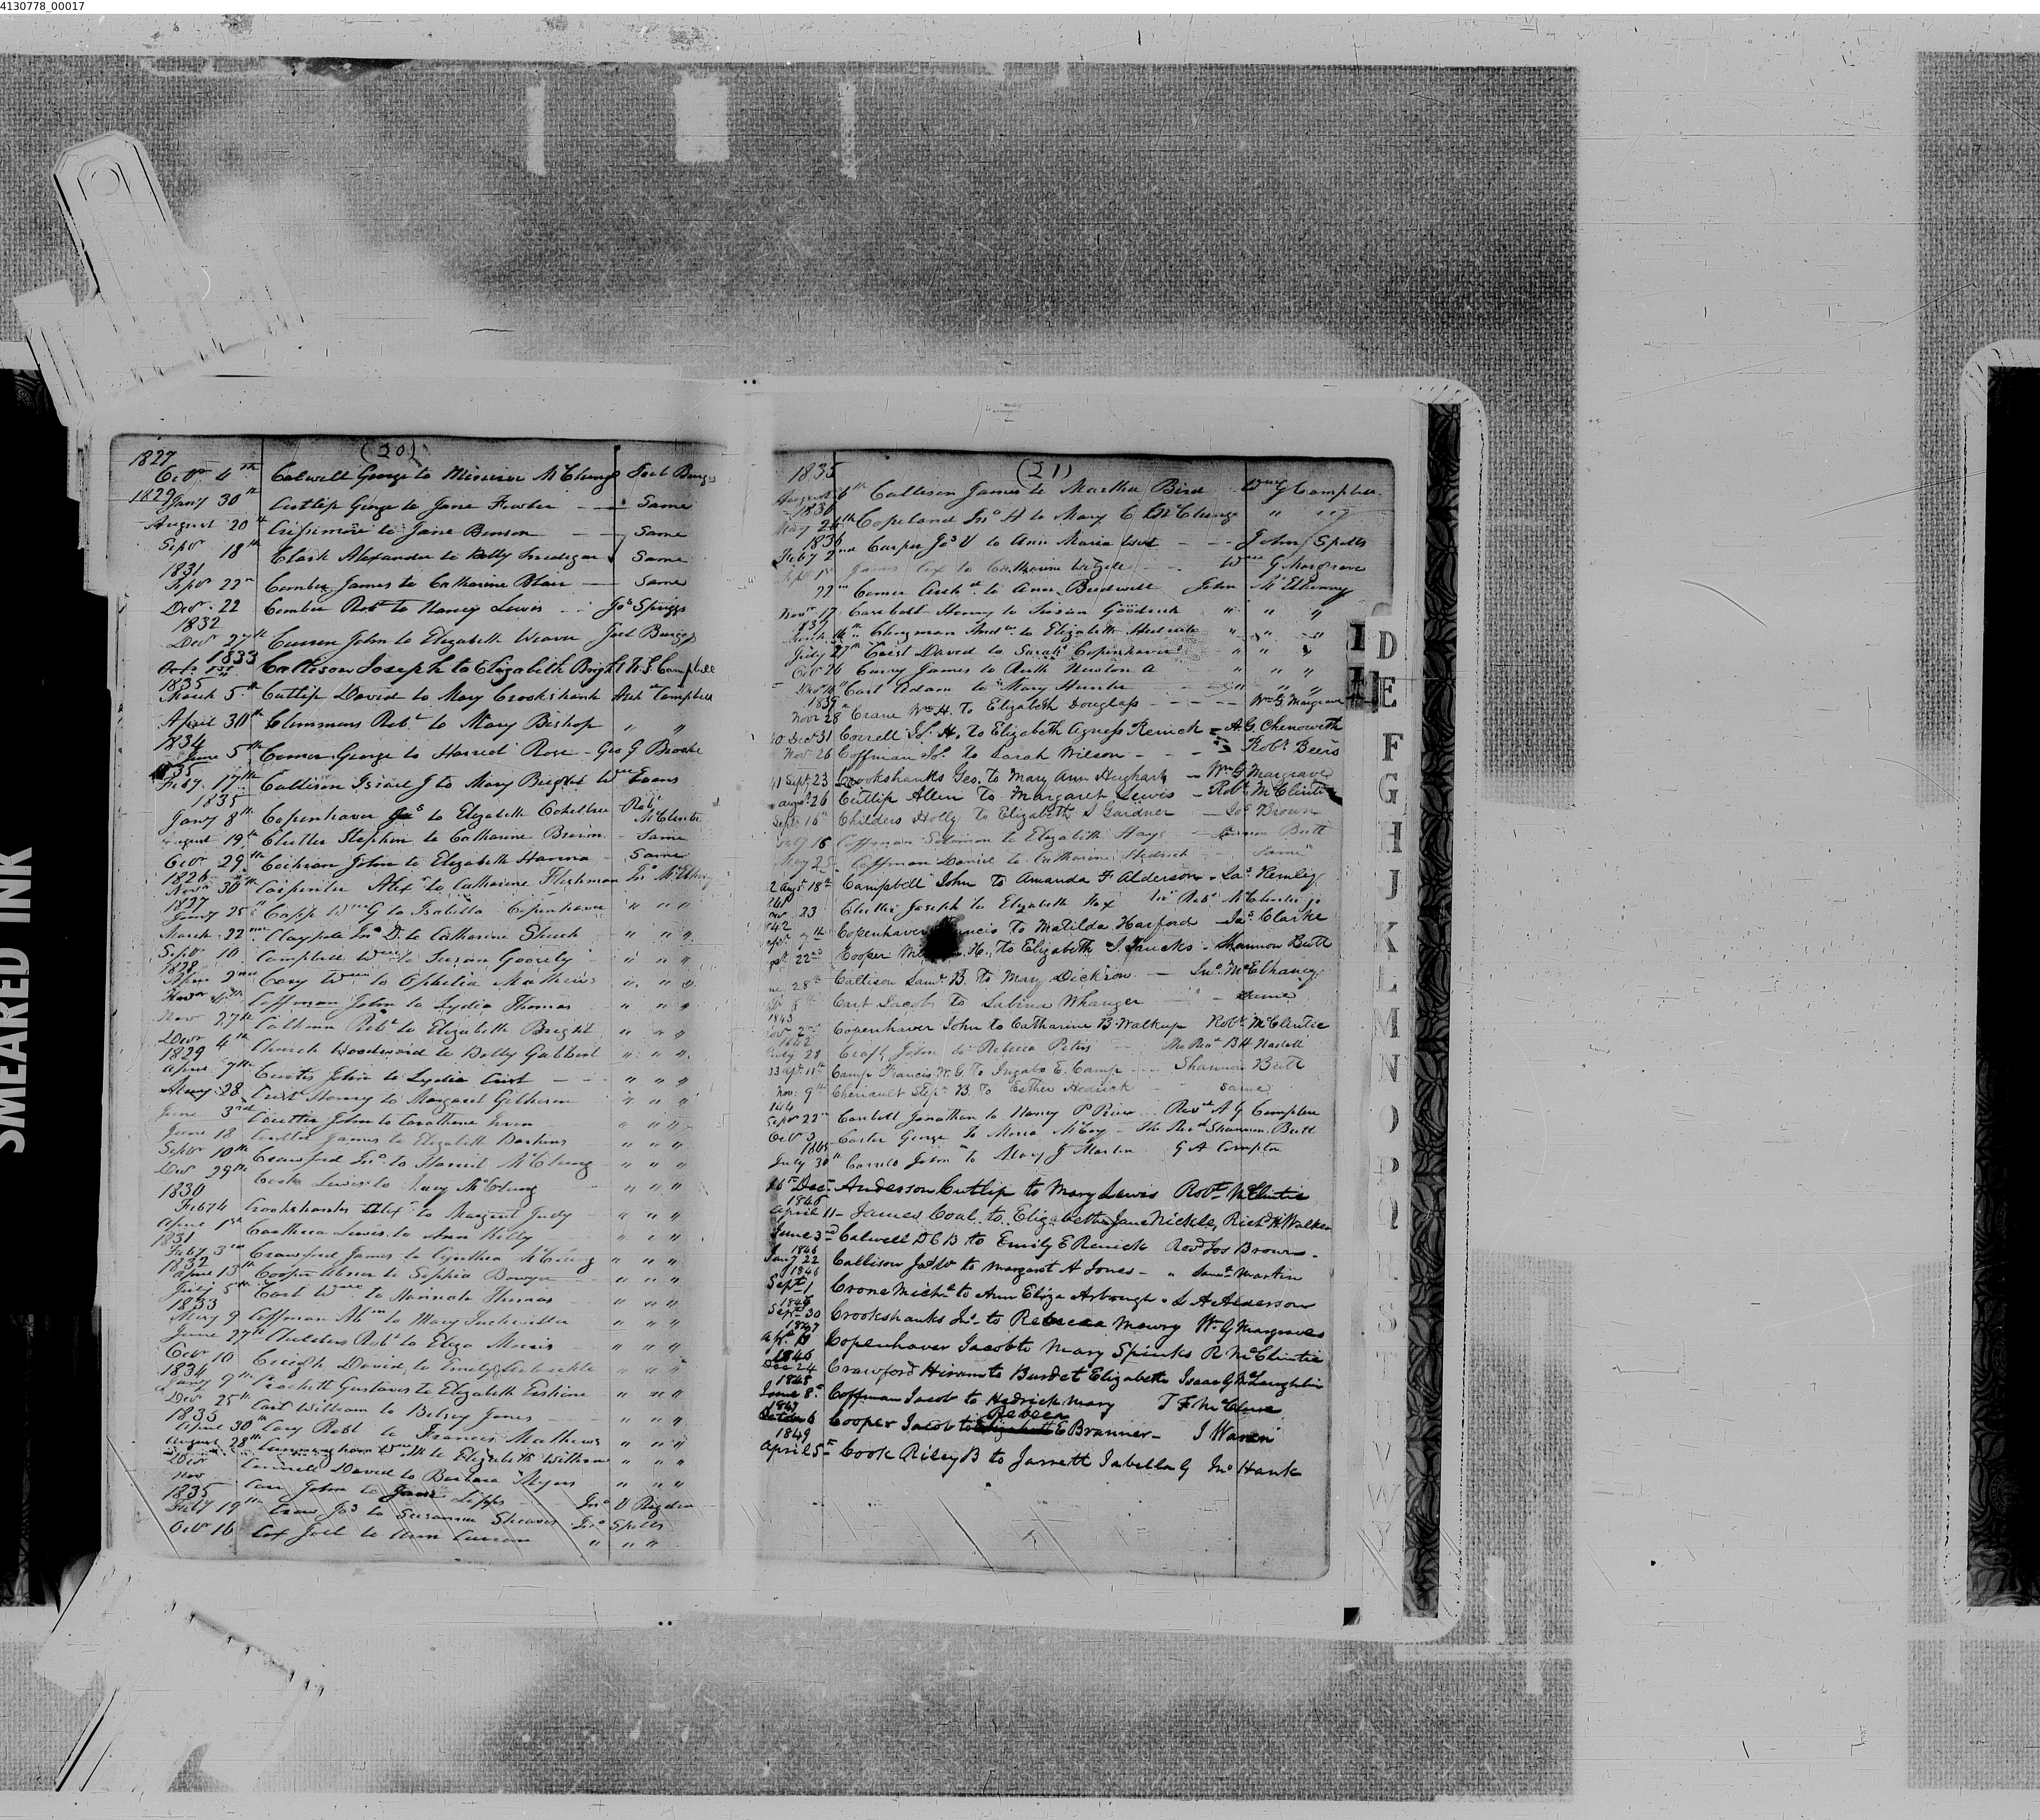 4130778_00017
SMEARED INK
(20)
1827
Octr 4th Calwell George to Missouri McClung Joel Burgess
1829 Jany 30th Cutlip George to Jane Fowler Same
August 20th Crissmore to Jane Benson Same
Septr 18th Clark Alexander to Polly Same
1831
Septr 22nd Comber James to Catharine Blair Same
Decr 22 Comber Robt to Nancy Lewis Jos Spriggs
1832
Decr 27th Curren John to Elizabeth Weaver Joel Burgess
1833
Octr 1st Callison Joseph to Elizabeth Bright N. S. Campbell
1835
March 5th Cutlip David to Mary Crookshank Arch Campbell
April 30th Clemmons Robt to Mary Bishop " "
1834
June 5th Comer George to Harriet Rose - Geo G Brooke
35
Feby 17th Callison Israel J to Mary Bright Wm Evans
1835
Jany 8th Copenhaver Jas to Elizabeth Robt McClintic
August 19th Clutter Stephen to Catharine Brown - Same
Octr 29th Cochran John to Elizabeth Hanna - Same
1826
Novr 30th Carpenter Alexr to Catharine Fleshman Jno McElheny
1827
Jany 25th Capp Wm G to Isabella Copenhaver " " "
March 22nd Claypole Jno D. to Catharine Shuck " " "
Septr 10 Campbell Wm to Susan " " "
1828
April 2nd Cary Wm to Ophelia Mathews " " "
6th Coffman John to Lydia Thomas " " "
Nov 27th Calhoun Robt to Elizabeth Bright " " "
Decr 4th Church Woodward to Betty " " "
1829
April 7th Curtis John to Lydia Crist " " "
May 28 Crist Henry to Margaret " " "
June 3rd John to " " "
June 18 James to Elizabeth " " "
Septr 10th Crawford Jno to Harriet McClung " " "
Decr 29th Cook Lewis to Nancy McClung " " "
1830
Feby 4 Crookshanks Alexr to Margaret Judy " " "
April 1st Lewis to Ann Kelly " " "
1831
Feby 3rd Crawford James to Cynthia McClung " " "
1832
April 13th Cooper Abner to Sophia " " "
July 5th Cart Wm to Hannah Thomas " " "
1833
May 9 Coffman Abm to Mary Tuckwiller " " "
June 27th Childers Robt to Eliza Morris " " "
Octr 10 Creigh David to Emily Arbuckle " " "
1834
Jany 9th Crockett Gustavus to Elizabeth Erskine " " "
Decr 25th Cart William to Betsey Jones " " "
1835
April 30th Cary Robt to Francis Mathews " " "
August 28th Cunningham Wm M to Elizabeth Withrow " " "
Decr David to Barbara Myers " " "
Nov Carr John to Jane Lipps Jno V Rigden
1835
Feby 19th Craw Jos to Susanna Shaver Jno Spotts
Octr 16 Cox Joel to Ann " " "
(21)
1835
August 6th Callison James to Martha Bird Wm G Campbell
1836
May 26th Copeland Jno H to Mary C McClunge " " "
1836
Feby 2nd Carper Jos V to Ann Maria John Spotts
Sept 1st James Cox to Catharine Wm G Margrave
22nd Comer Archd to Ann Bridwell John McElhenny
Novr 17 Carabolt Henry to Susan Goodrich " " "
1837
March 16th Clingman Andw to Elizabeth " " "
July 27th Crist David to Sarah Copenhaver " " "
Octr 26 Curry James to Ruth Newton A " " "
Cart Adam to Mary Hunter " " "
1839
Novr 28 Crane Wm H. To Elizabeth Douglass - Wm G. Margrave
40 Decr 31 Correll H, to Elizabeth Agness Renick - A. G. Chenoweth
Novr 26 Coffman Js. To Sarah Wilson - Robt Beers
41 Sept 23 Crookshanks Geo. to Mary Ann Hughart - Wm G Margrave
augst 26 Cutlip Allen To Margaret Lewis - Robt McClintic
Sept 16th Childers Holly To Elizabeth S Gardner - Jos Brown
July 16 Coffman Solomon to Elizabeth Hays - Butt
May 25 Coffman Daniel to Catharine Hedrick - Same
2 Augt 18th Campbell John To Amanda F Alderson - Jas Remley
Nov 23 Clutter Joseph to Elizabeth Fox Robt McClintic jr
42
7th Copenhaver To Matilda Harford - Jas Clarke
22nd Cooper H., To Elizabeth J Shucks - Shannon Butt
28th Callison Saml B. To Mary Dickson - Jno McElhaney
Cart Jacob To Sabina Whanger - Same
1843
Novr 2nd Copenhaver John to Catharine B. Walkup Robt McClintic
1842
July 28 Craft John to Rebeca Peters The Revd B H
43 Apr. 11th Camp Francis W. G. To E. Camp Shannon Butt
Nov. 9th Chenault Stepn B. To Esther Hedrick Same
1844
Septr 22nd Caraboll Jonathan to Nancy P Price Revd A G Compton
Octr 3 Carter George To Maria McCoy - The Revd Shannon Butt
1845
July 30th Correll John to Mary J Martin G A Compton
16th Decr Anderson Cutlip to Mary Lewis Robt McClintic
1846
April 11 - James Coal to Elizabeth Jane Nickle, Richd H. Walker
June 3rd Calwell D C B to Emily E Renick Revd Jos Brown -
1846
Jany 22 Callison Jas W to Margaret A Jones - " Saml Martin
1846
Sept 1 Crone Michl to Ann Eliza Arbough " L A Alderson
1846
Sept 30 Crookshanks Jno to Rebecca Mowry Wm G Margraves
1847
Apr. Copenhaver Jacob to Mary Spinks R McClintic
1846
Dec 24 Crawford Hiram to Burdet Elizabeth Isaac G McLaughlin
1848
June 8th Coffman Jacob to Hedrick Mary T F McClure
1849
October 6 Cooper Jacob to Elizabeth Rebeca E Branner - J Warren
1849
April 5th - Cook Riley B to Jarrett Isabella G Jno Hank
D
E
F
G
H
J
K
L
M
N
O
P
Q
R
S
T
U
V
W
Y